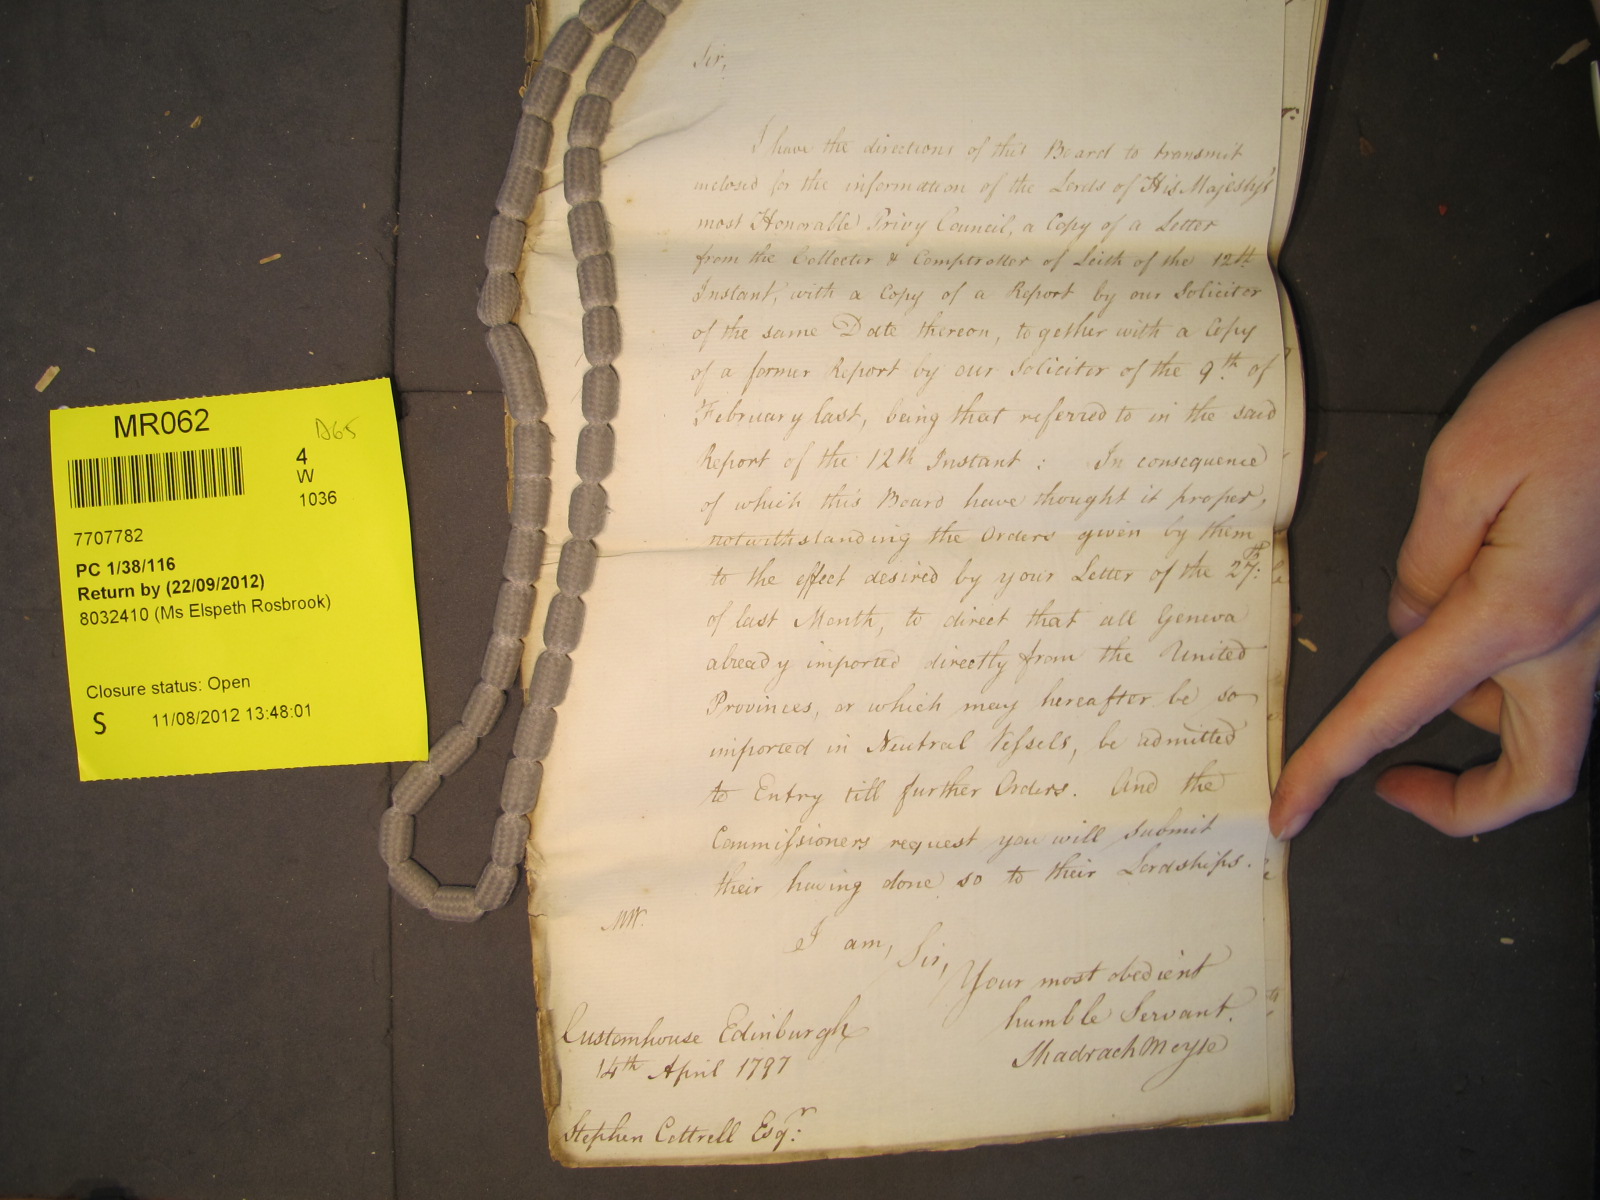 MR062
D65
4
W
1036
7707782
PC 1/38/116
Return by (22/09/2012)
8032410 (Ms Elspeth Rosbrook)
Closure status: Open
S 11/08/2012 13:48:01
Sir,
I have the directions of this Board to transmit
inclosed for the information of the Lords of His Majesty's
most Honorable Privy Council, a Copy of a Letter
from the Collector & Comptroller of Leith of the 12th
Instant, with a Copy of a Report by our Solicitor
of the same Date thereon, together with a Copy
of a former Report by our Solicitor of the 9th of
February last, being that referred to in the said
Report of the 12th Instant: In consequence
of which this Board have thought it proper,
notwithstanding the Orders given by them
to the effect desired by your Letter of the 27th:
of last Month, to direct that all Geneva
already imported directly from the United
Provinces, or which may hereafter be so
imported in Neutral Vessels, be admitted
to Entry till further Orders. And the
Commissioners request you will submit
their having done so to their Lordships.
I am, Sir,
Your most obedient
humble Servant.
Shadrach Moyse
Customhouse Edinburgh
14th April 1797
Stephen Cottrell Esqr: